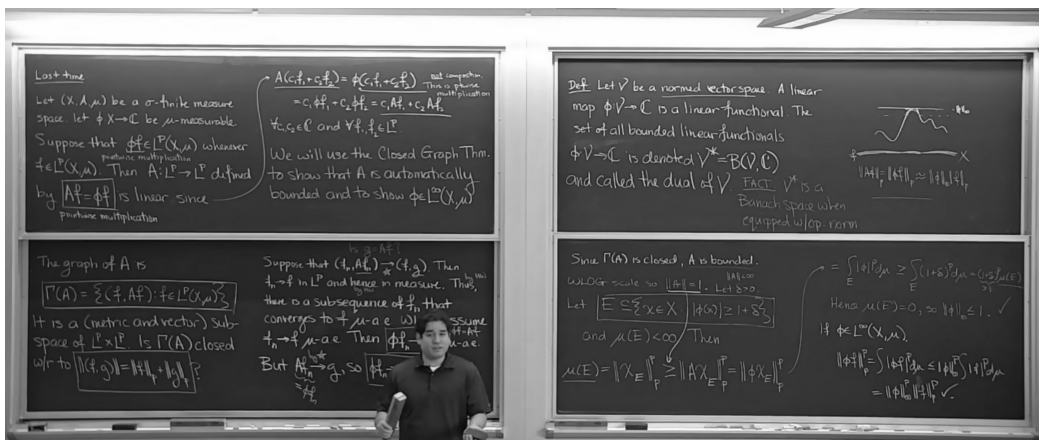 Last time
Let (X, A, μ) be a σ-finite measure
space. Let ϕ X→ℂ be μ-measurable.
Suppose that ϕf ∈ L^p(X,μ) whenever
pointwise multiplication
f∈L^p(X,μ). Then A: L^p→L^p defined
by Af=ϕf is linear since
pointwise multiplication
A(c₁f₁+c₂f₂) = ϕ(c₁f₁+c₂f₂)
not composition.
This is ptwise
multiplication
=c₁ϕf₁+c₂ϕf₂=c₁Af₁+c₂Af₂
∀c₁,c₂∈ℂ and ∀f₁,f₂∈L^p.
We will use the Closed Graph Thm.
to show that A is automatically
bounded and to show ϕ∈L^∞(X,μ)
The graph of A is
Γ(A) = {(f,Af): f∈L^p(X,μ)}
It is a (metric and vector) sub-
space of L^p×L^p. Is Γ(A) closed
w/r to ‖(f,g)‖=‖f‖_p+‖g‖_p?
Is g=Af?
Suppose that (f_n, Af_n) → (f,g). Then
*
f_n→f in L^p and hence in measure. Thus,
there is a subsequence of f_n that
converges to f μ-a.e.
assume
f_n→f μ-a.e. Then ϕf_n
μ-a.e.
But Af_n → g, so ϕf_n
by *
Def. Let V be a normed vector space. A linear
map ϕ:V→ℂ is a linear-functional. The
set of all bounded linear-functionals
ϕ V→ℂ is denoted V*=B(V,ℂ)
and called the dual of V.
FACT V* is a
Banach space when
equipped w/op-norm
f X
‖Af‖_p=‖ϕf‖_p≈‖ϕ‖_∞‖f‖_p
Since Γ(A) is closed, A is bounded.
‖A‖<∞
WLOG scale so ‖A‖=1. Let δ>0.
Let E⊆{x∈X : |ϕ(x)|≥1+δ}
and μ(E)<∞ Then
μ(E)=‖χ_E‖_p^p≥‖Aχ_E‖_p^p=‖ϕχ_E‖_p^p
=∫_E|ϕ|^p dμ ≥ ∫_E(1+δ)^p dμ=(1+δ)^p μ(E)
>1
Hence μ(E)=0, so ‖ϕ‖_∞≤1. ✓
If ϕ∈L^∞(X,μ),
‖ϕf‖_p^p=∫|ϕf|^p dμ≤‖ϕ‖_∞^p∫|f|^p dμ
=‖ϕ‖_∞^p‖f‖_p^p ✓